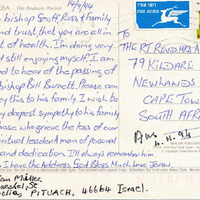 EBA - The Bedouin Market
11/9/94
bishop Scott, Ross & family
and trust, that you are all in
of health. I'm doing very
still enjoying myself. I am
to hear of the passing of
bishop Bill Burnett. Please can
this to his family. I wish to
deepest sympathy to his family
those who grieve the loss of our
spiritual leader & man of personal
and dedication. I'll always remember him
I love the Address. God Bless. Much love, Joan.
Joan Miller
St
PITUACH, 46664 Israel.
PAR AVION
TO
THE RT REVD
79 KILDARE
NEWLANDS
CAPE TOW
SOUTH AFR